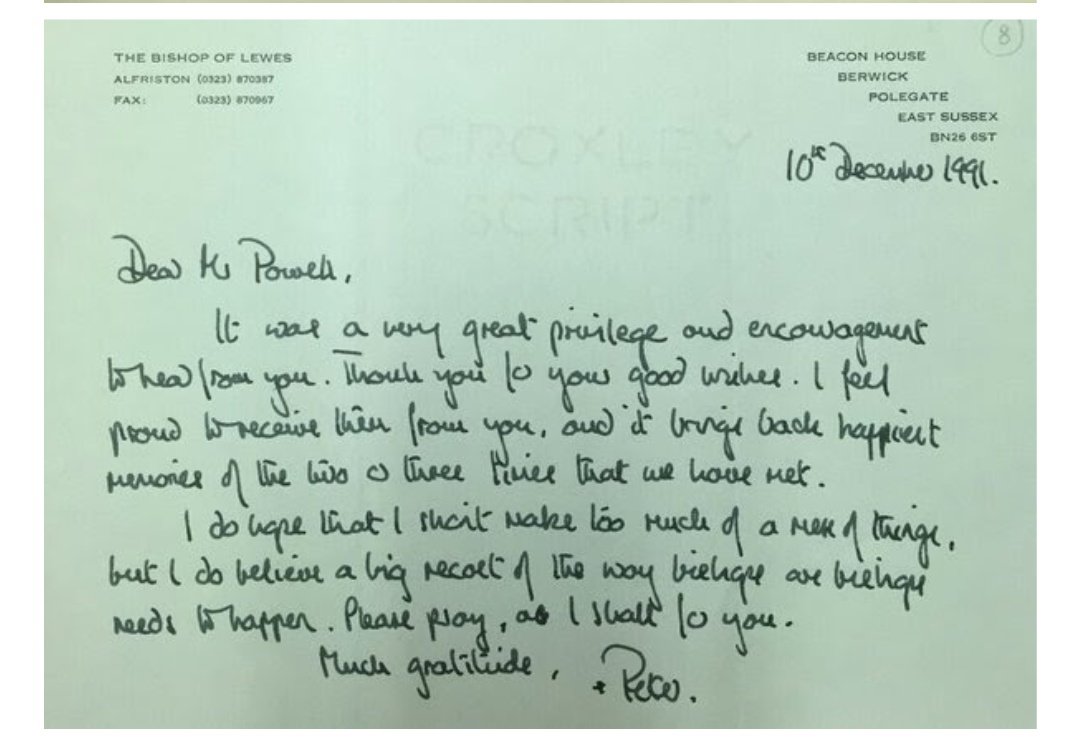 8
THE BISHOP OF LEWES
ALFRISTON (0323) 870387
FAX: (0323) 870967
BEACON HOUSE
BERWICK
POLEGATE
EAST SUSSEX
BN26 6ST
CROXLEY
SCRIPT
10th December 1991.
Dear Mr Powell,
It was a very great privilege and encouragement
to hear from you. Thank you for your good wishes. I feel
proud to receive them from you, and it brings back happiest
memories of the two or three times that we have met.
I do hope that I shan't make too much of a mess of things,
but I do believe a big recast of the way bishops are bishops
needs to happen. Please pray, as I shall for you.
Much gratitude,
+ Peter.